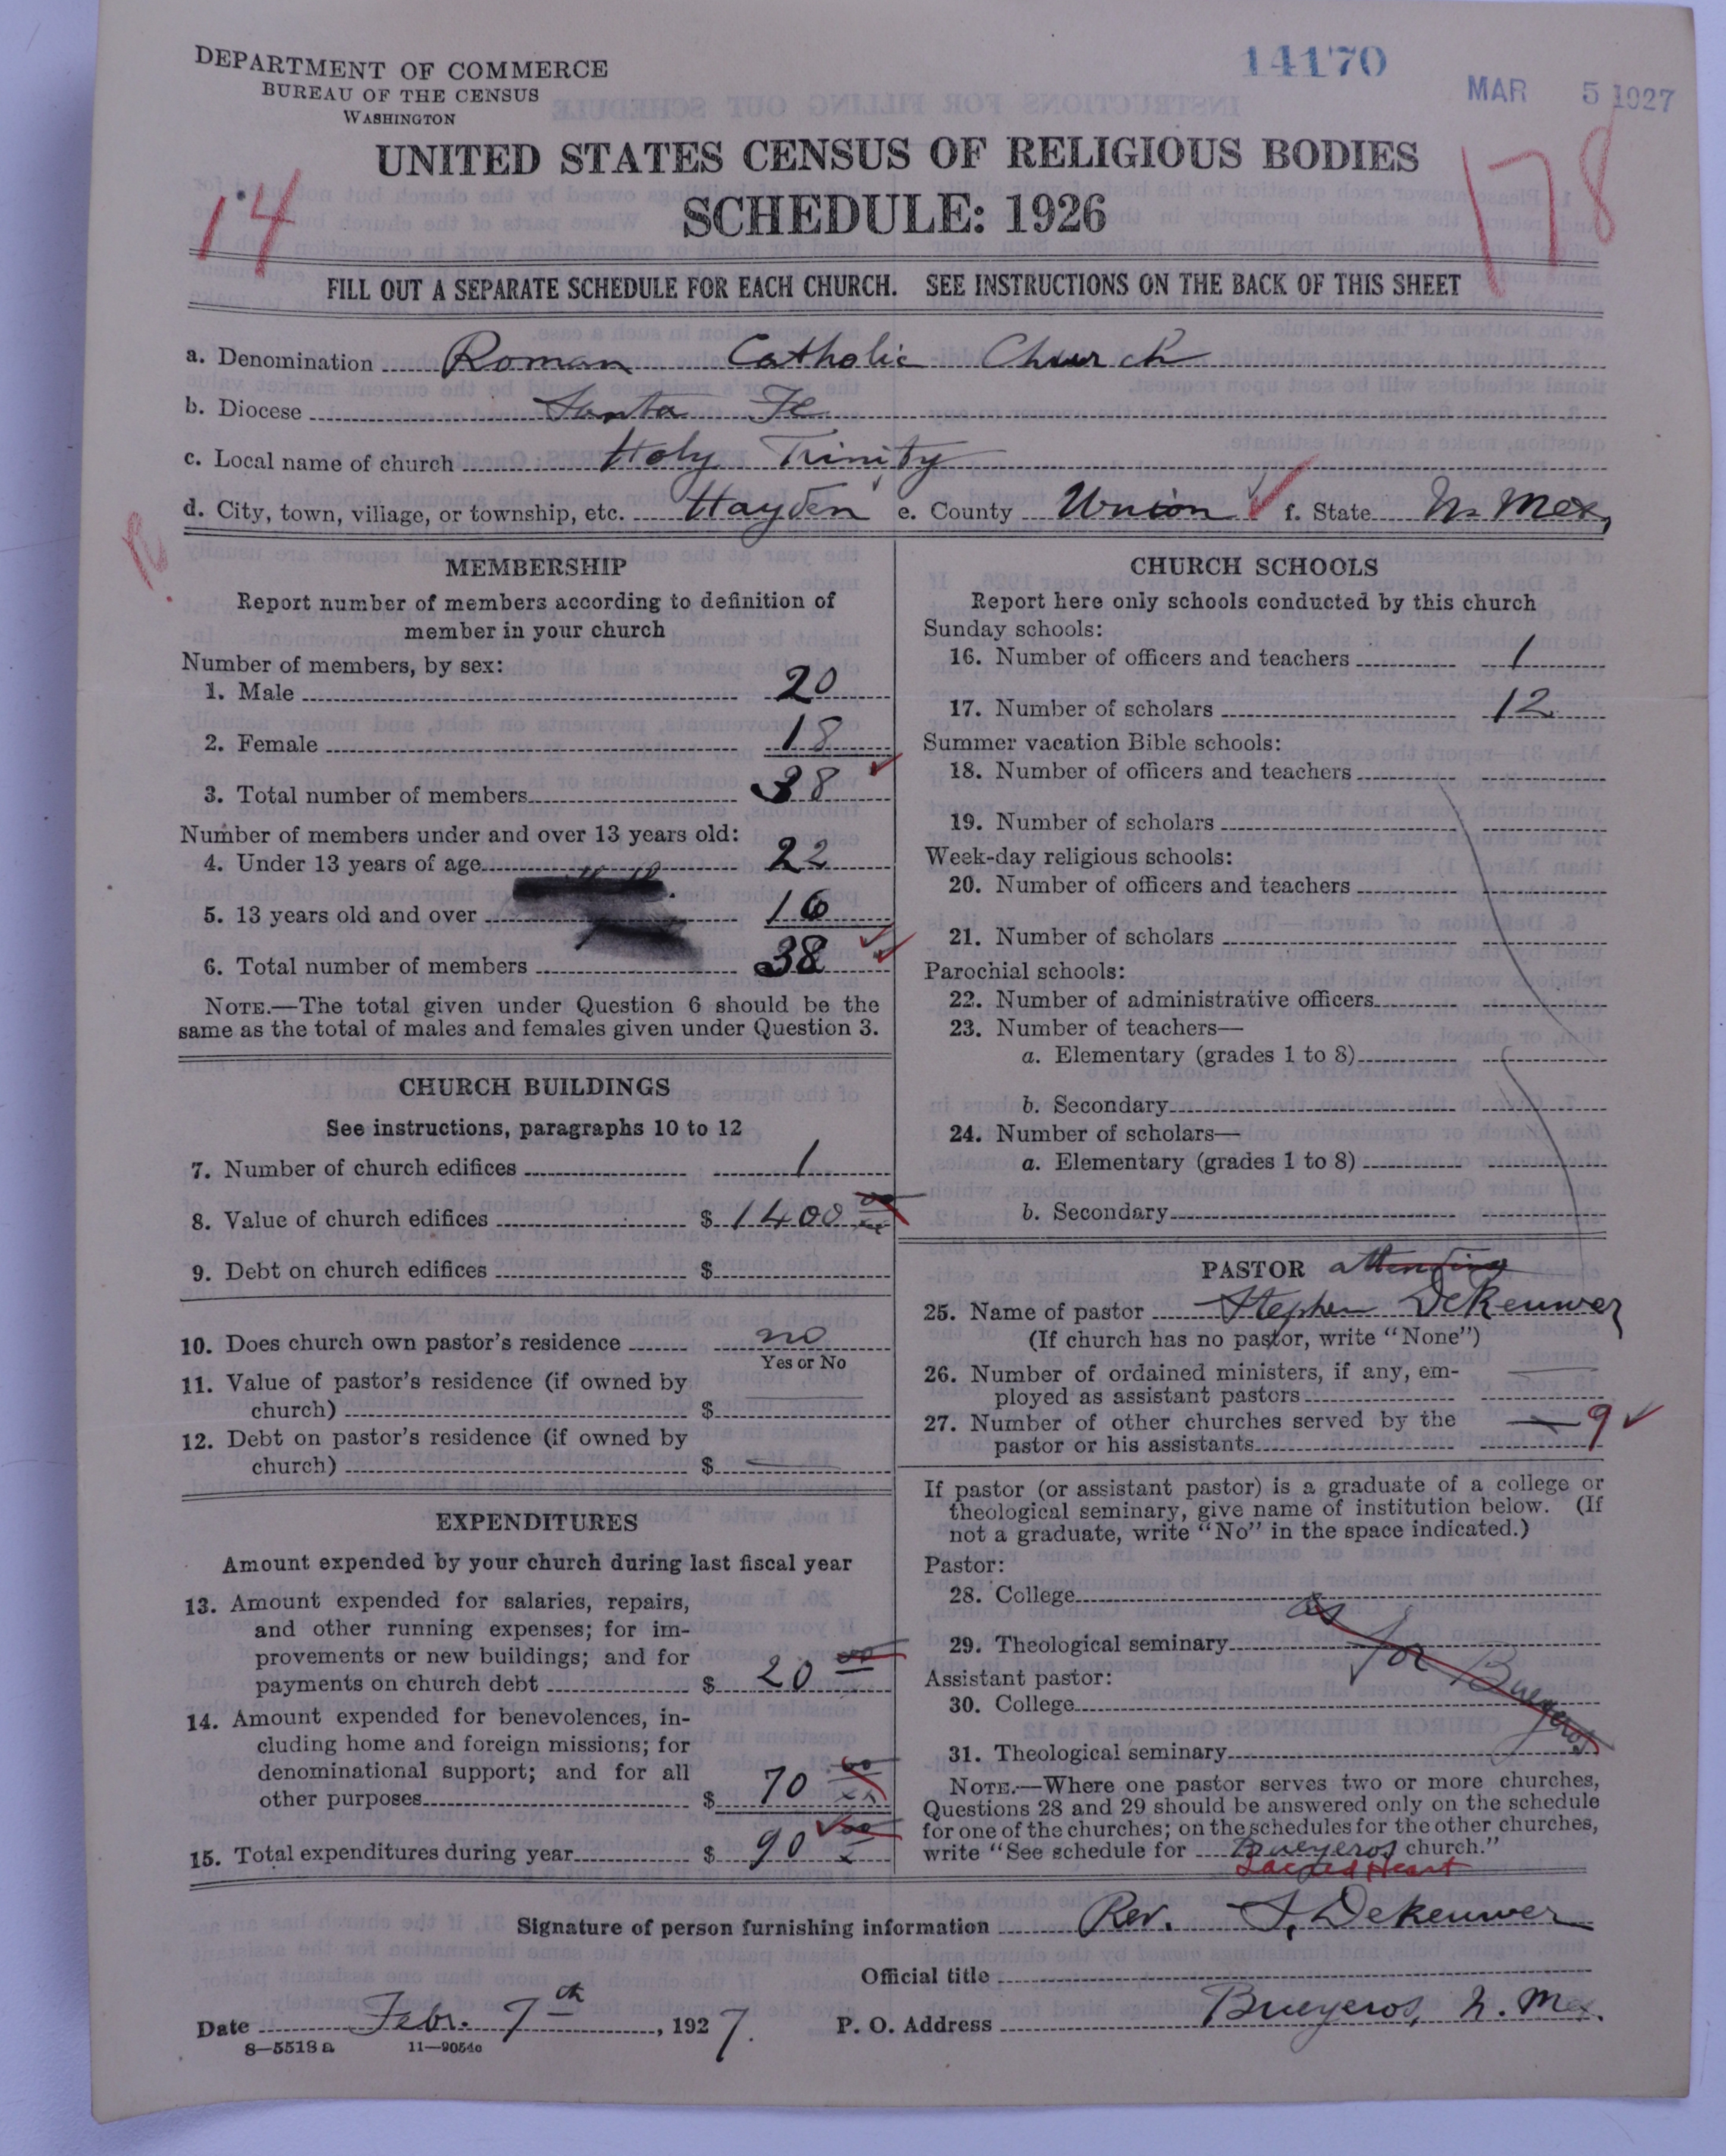 DEPARTMENT OF COMMERCE
BUREAU OF THE CENSUS
WASHINGTON
14170
MAR 5 1927
UNITED STATES CENSUS OF RELIGIOUS BODIES
SCHEDULE: 1926
14
178
FILL OUT A SEPARATE SCHEDULE FOR EACH CHURCH. SEE INSTRUCTIONS ON THE BACK OF THIS SHEET
a. Denomination Roman Catholic Church
b. Diocese Santa Fe
c. Local name of church Holy Trinity
d. City, town, village, or township, etc. Hayden e. County Union f. State N. Mex,
MEMBERSHIP
Report number of members according to definition of
member in your church
Number of members, by sex:
1. Male 20
2. Female 18
3. Total number of members 38
Number of members under and over 13 years old:
4. Under 13 years of age 22
5. 13 years old and over 16
6. Total number of members 38
NOTE.—The total given under Question 6 should be the
same as the total of males and females given under Question 3.
CHURCH BUILDINGS
See instructions, paragraphs 10 to 12
7. Number of church edifices 1
8. Value of church edifices $ 1400 00
9. Debt on church edifices $
10. Does church own pastor's residence no
Yes or No
11. Value of pastor's residence (if owned by
church) $
12. Debt on pastor's residence (if owned by
church) $
EXPENDITURES
Amount expended by your church during last fiscal year
13. Amount expended for salaries, repairs,
and other running expenses; for im-
provements or new buildings; and for
payments on church debt $ 20 00
14. Amount expended for benevolences, in-
cluding home and foreign missions; for
denominational support; and for all
other purposes $ 70 00 xx
15. Total expenditures during year $ 90 00 x
CHURCH SCHOOLS
Report here only schools conducted by this church
Sunday schools:
16. Number of officers and teachers 1
17. Number of scholars 12
Summer vacation Bible schools:
18. Number of officers and teachers
19. Number of scholars
Week-day religious schools:
20. Number of officers and teachers
21. Number of scholars
Parochial schools:
22. Number of administrative officers
23. Number of teachers—
a. Elementary (grades 1 to 8)
b. Secondary
24. Number of scholars—
a. Elementary (grades 1 to 8)
b. Secondary
PASTOR attending
25. Name of pastor Stephen DeKeuwer
(If church has no pastor, write "None")
26. Number of ordained ministers, if any, em-
ployed as assistant pastors
27. Number of other churches served by the
pastor or his assistants 9
If pastor (or assistant pastor) is a graduate of a college or
theological seminary, give name of institution below. (If
not a graduate, write "No" in the space indicated.)
Pastor:
28. College
as
29. Theological seminary for
Assistant pastor:
Bueyeros
30. College
31. Theological seminary
NOTE.—Where one pastor serves two or more churches,
Questions 28 and 29 should be answered only on the schedule
for one of the churches; on the schedules for the other churches,
write "See schedule for Bueyeros church."
Sacred Heart
Signature of person furnishing information Rev. S. Dekeuwer
Official title
Date Febr. 7th, 1927. P. O. Address Bueyeros, N. Mex.
8—5518 a 11—9054o